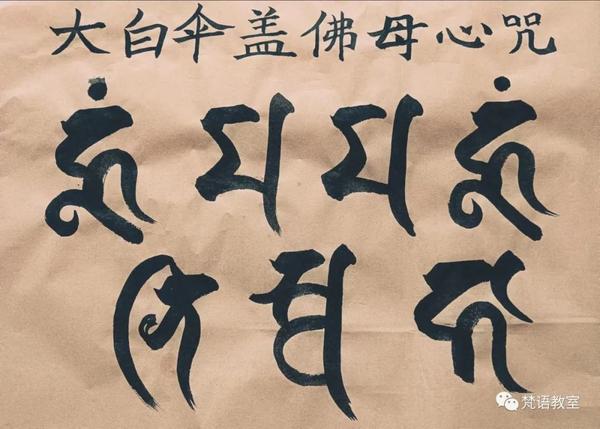 大白伞盖佛母心咒
𑖮𑖳𑖽 𑖦 𑖦 𑖮𑖳𑖽
𑖡𑖰 𑖭𑖿𑖪𑖯 𑖮𑖯
梵语教室